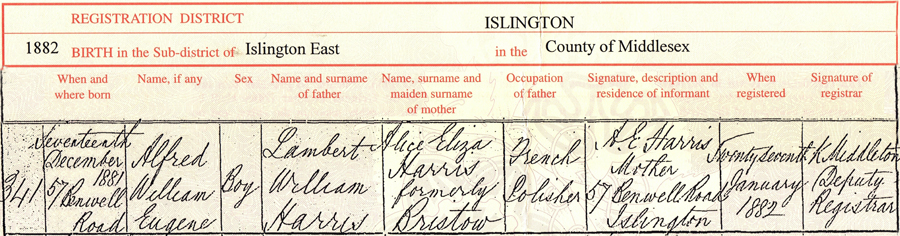 REGISTRATION DISTRICT ISLINGTON
1882 BIRTH in the Sub-district of Islington East in the County of Middlesex
When and where born
Name, if any
Sex
Name and surname of father
Name, surname and maiden surname of mother
Occupation of father
Signature, description and residence of informant
When registered
Signature of registrar
341
Seventeenth
December
1881
57 Benwell
Road
Alfred
William
Eugene
Boy
Lambert
William
Harris
Alice Eliza
Harris
formerly
Bristow
French
Polisher
A. E. Harris
Mother
57 Benwell Road
Islington
Twenty seventh
January
1882
K Middleton
Deputy
Registrar